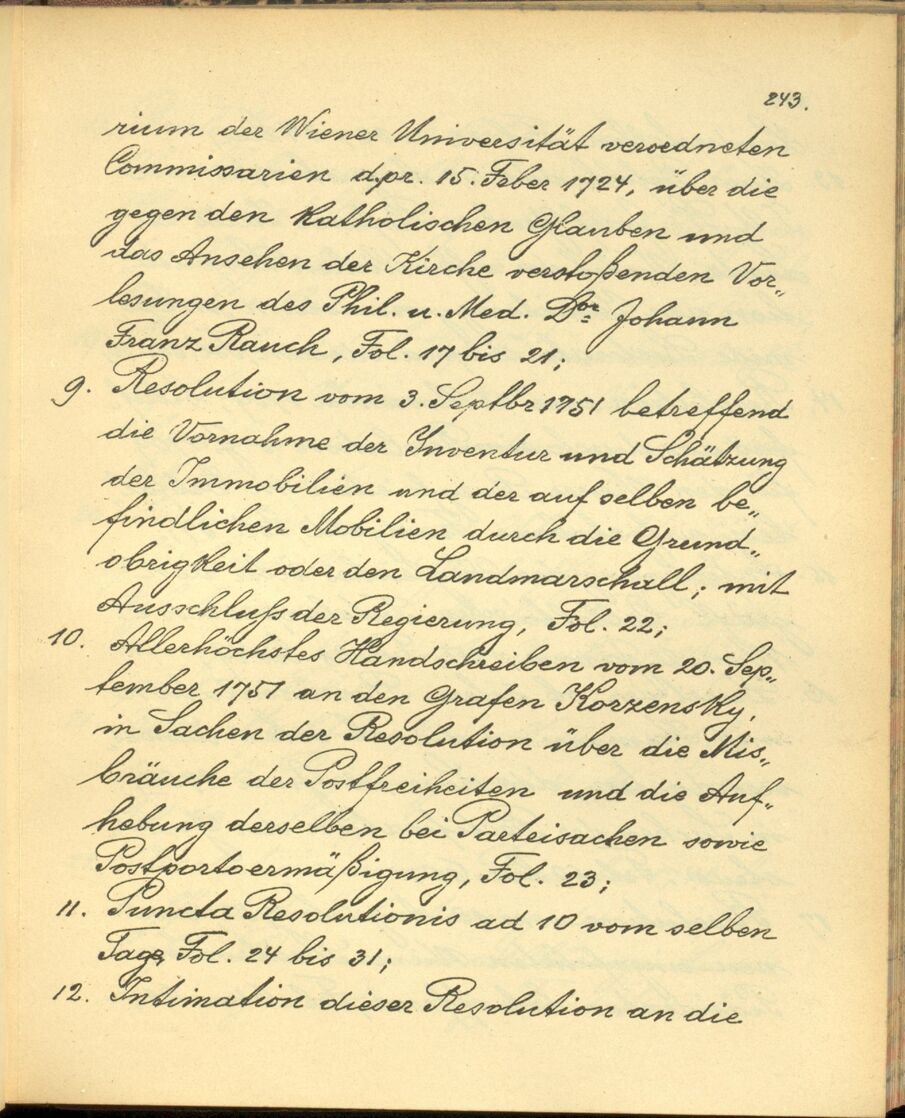 243.
rium der Wiener Universität verordneten
Commissarien d.pr. 15. Feber 1724, über die
gegen den katholischen Glauben und
das Ansehen der Kirche verstoßenden Vor„
lesungen des Phil. u. Med. Dor Johann
Franz Rauch, Fol. 17 bis 21;
9. Resolution vom 3. Septbr 1751 betreffend
die Vornahme der Inventur und Schätzung
der Immobilien und der auf selben be„
findlichen Mobilien durch die Grund„
obrigkeit oder den Landmarschall; mit
Ausschluß der Regierung, Fol. 22;
10. Allerhöchstes Handschreiben vom 20. Sep„
tember 1751 an den Grafen Korzensky,
in Sachen der Resolution über die Mis„
bräuche der Postfreiheiten und die Auf„
hebung derselben bei Parteisachen sowie
Postportoermäßigung, Fol. 23;
11. Puncta Resolutionis ad 10 vom selben
Tage, Fol. 24 bis 31;
12. Intimation dieser Resolution an die